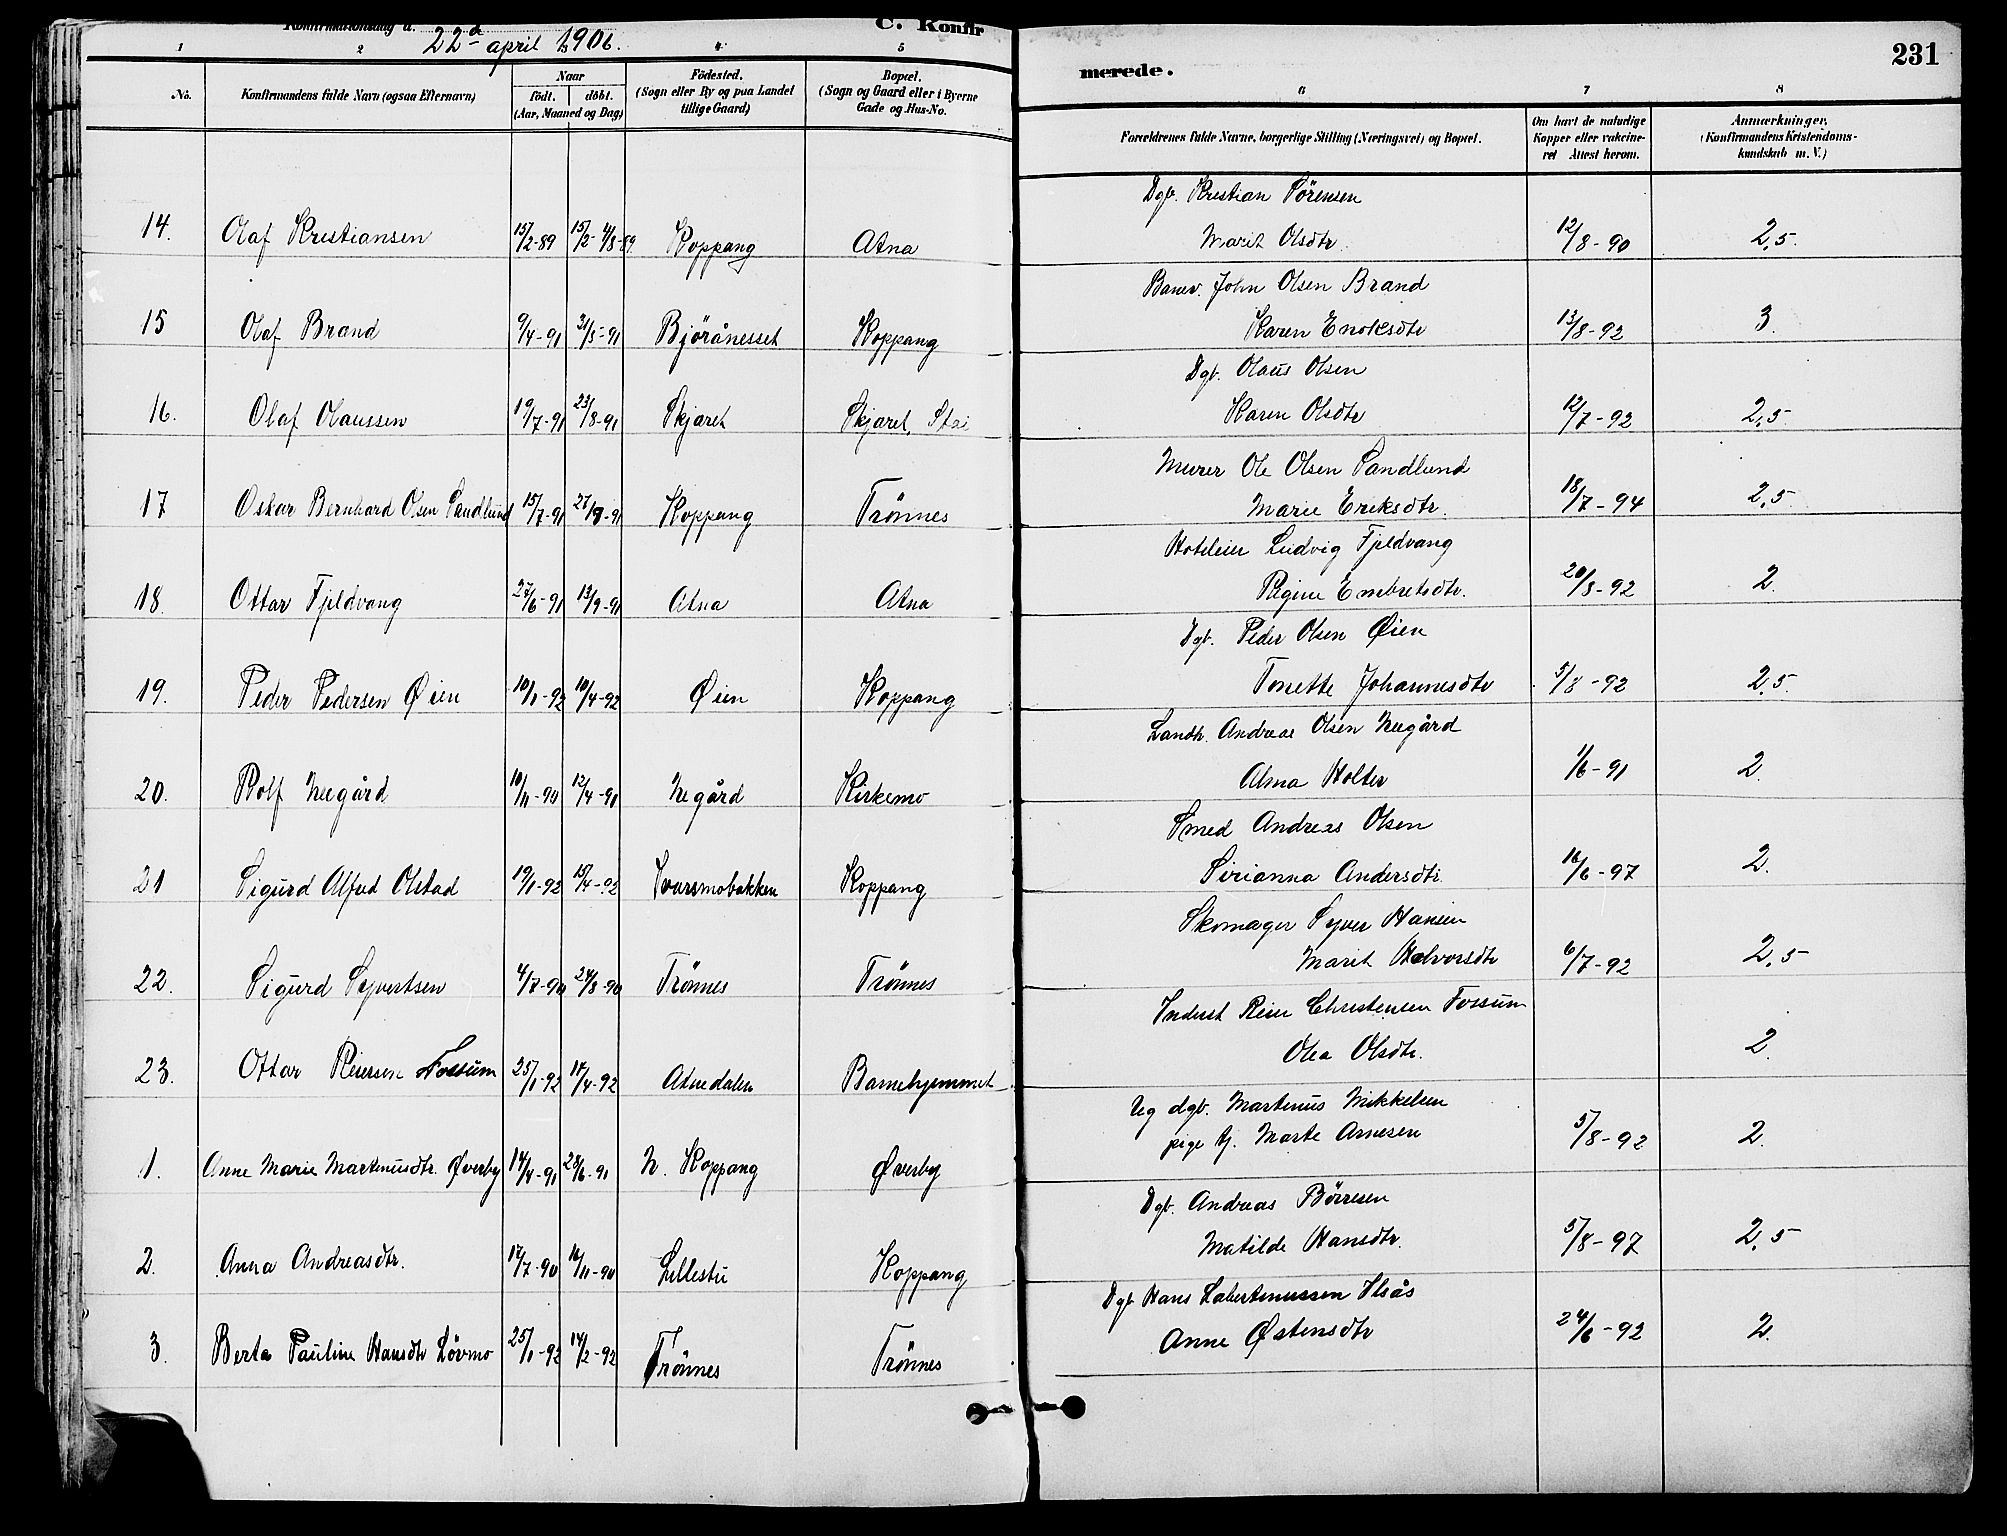 Konfirmationsdag d.
22d april 1906.
C. Konfir
merede.
231
1
2
4
5
6
7
8
No.
Konfirmandens fulde Navn (ogsaa Efternavn)
Naar
födt. döbt.
(Aar, Maaned og Dag)
Födested.
(Sogn eller By og paa Landet
tillige Gaard)
Bopæl.
(Sogn og Gaard eller i Byerne
Gade og Hus-No.
Forældrenes fulde Navne, borgerlige Stilling (Næringsvei) og Bopæl.
Om havt de naturlige
Kopper eller vakcine-
ret Attest herom.
Anmærkninger,
(Konfirmandens Kristendoms-
kundskab m. V.)
Dgb. Kristian Sörensen
14. Olaf Kristiansen 15/2-89 15/2- 4/8-89. Koppang Atna Marit Olsdtr. 12/8-90 2,5.
Banev. John Olsen Brand
15 Olaf Brand 9/4-91 31/5-91 Björånesset Koppang Karen Enoksdtr 13/8-92 3.
Dgb. Olaus Olsen
16. Olaf Olaussen 19/7-91 23/8-91 Skjæret Skjæret, Stai Karen Olsdtr 12/7-92 2,5.
Murer Ole Olsen Sandlund
17 Oskar Bernhard Olsen Sandlund 15/7-91 27/9-91 Koppang Trönnes Marie Eriksdtr. 18/7-94 2,5
Hoteleier Ludvig Fjeldvang
18. Ottar Fjeldvang 27/6-91 13/9-91 Atna Atna Regine Embretsdtr. 20/8-92 2.
Dgb. Peder Olsen Øien
19. Peder Pedersen Øien 10/1-92 10/4-92 Øien Koppang Tonette Johannesdtr 5/8-92 2,5.
Landh. Andreas Olsen Negård
20. Rolf Negård 10/11-90 12/4-91 Negård Kirkemo Alma Holter 1/6-91 2.
Smed Andreas Olsen
21 Sigurd Alfred Olstad 19/1-92 15/4-92 Ivarsmobakken Koppang Sirianna Andersdtr. 16/6-97 2.
Skomager Syver Hansen
22. Sigurd Syvertsen 4/7-90 24/8-90 Trönnes Trönnes Marit Halvorsdtr 6/7-92 2,5
Inderst Reier Christensen Fossum
23. Ottar Reiersen Fossum 25/1-92 17/4-92 Atnedalen Barnehjemmet Olea Olsdtr. 2.
Ug dgb. Martinus Mikkelsen
pige tj. Marte Arnesen 5/8-92 2.
1. Anne Marie Martinusdtr. Øverby 14/4-91 28/6-91 N. Koppang Øverby
Dgb. Andreas Börresen
2. Anna Andreasdtr. 17/7-90 16/11-90 Lillestu Koppang Matilde Hansdtr. 5/8-97 2,5
Dgb Hans Labertinussen Ilsås
3. Berta Pauline Hansdtr Lövmo 25/1-92 14/2-92 Trönnes Trönnes Anne Østensdtr 24/6-92 2.